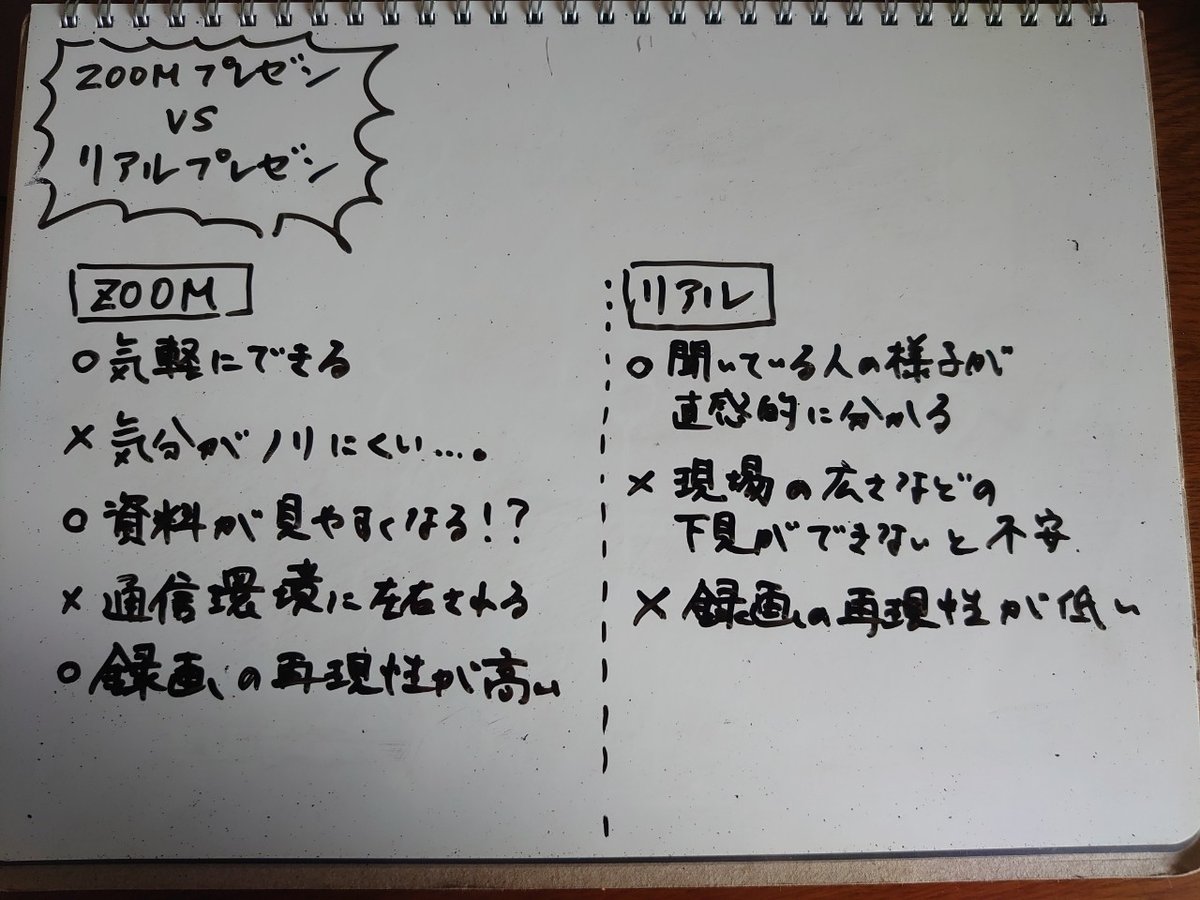 ZOOMプレゼン
VS
リアルプレゼン
ZOOM
○気軽にできる
×気分がノリにくい…。
○資料が見やすくなる!?
×通信環境に左右される
○録画の再現性が高い
リアル
○聞いている人の様子が
直感的に分かる
×現場の広さなどの
下見ができないと不安
×録画の再現性が低い